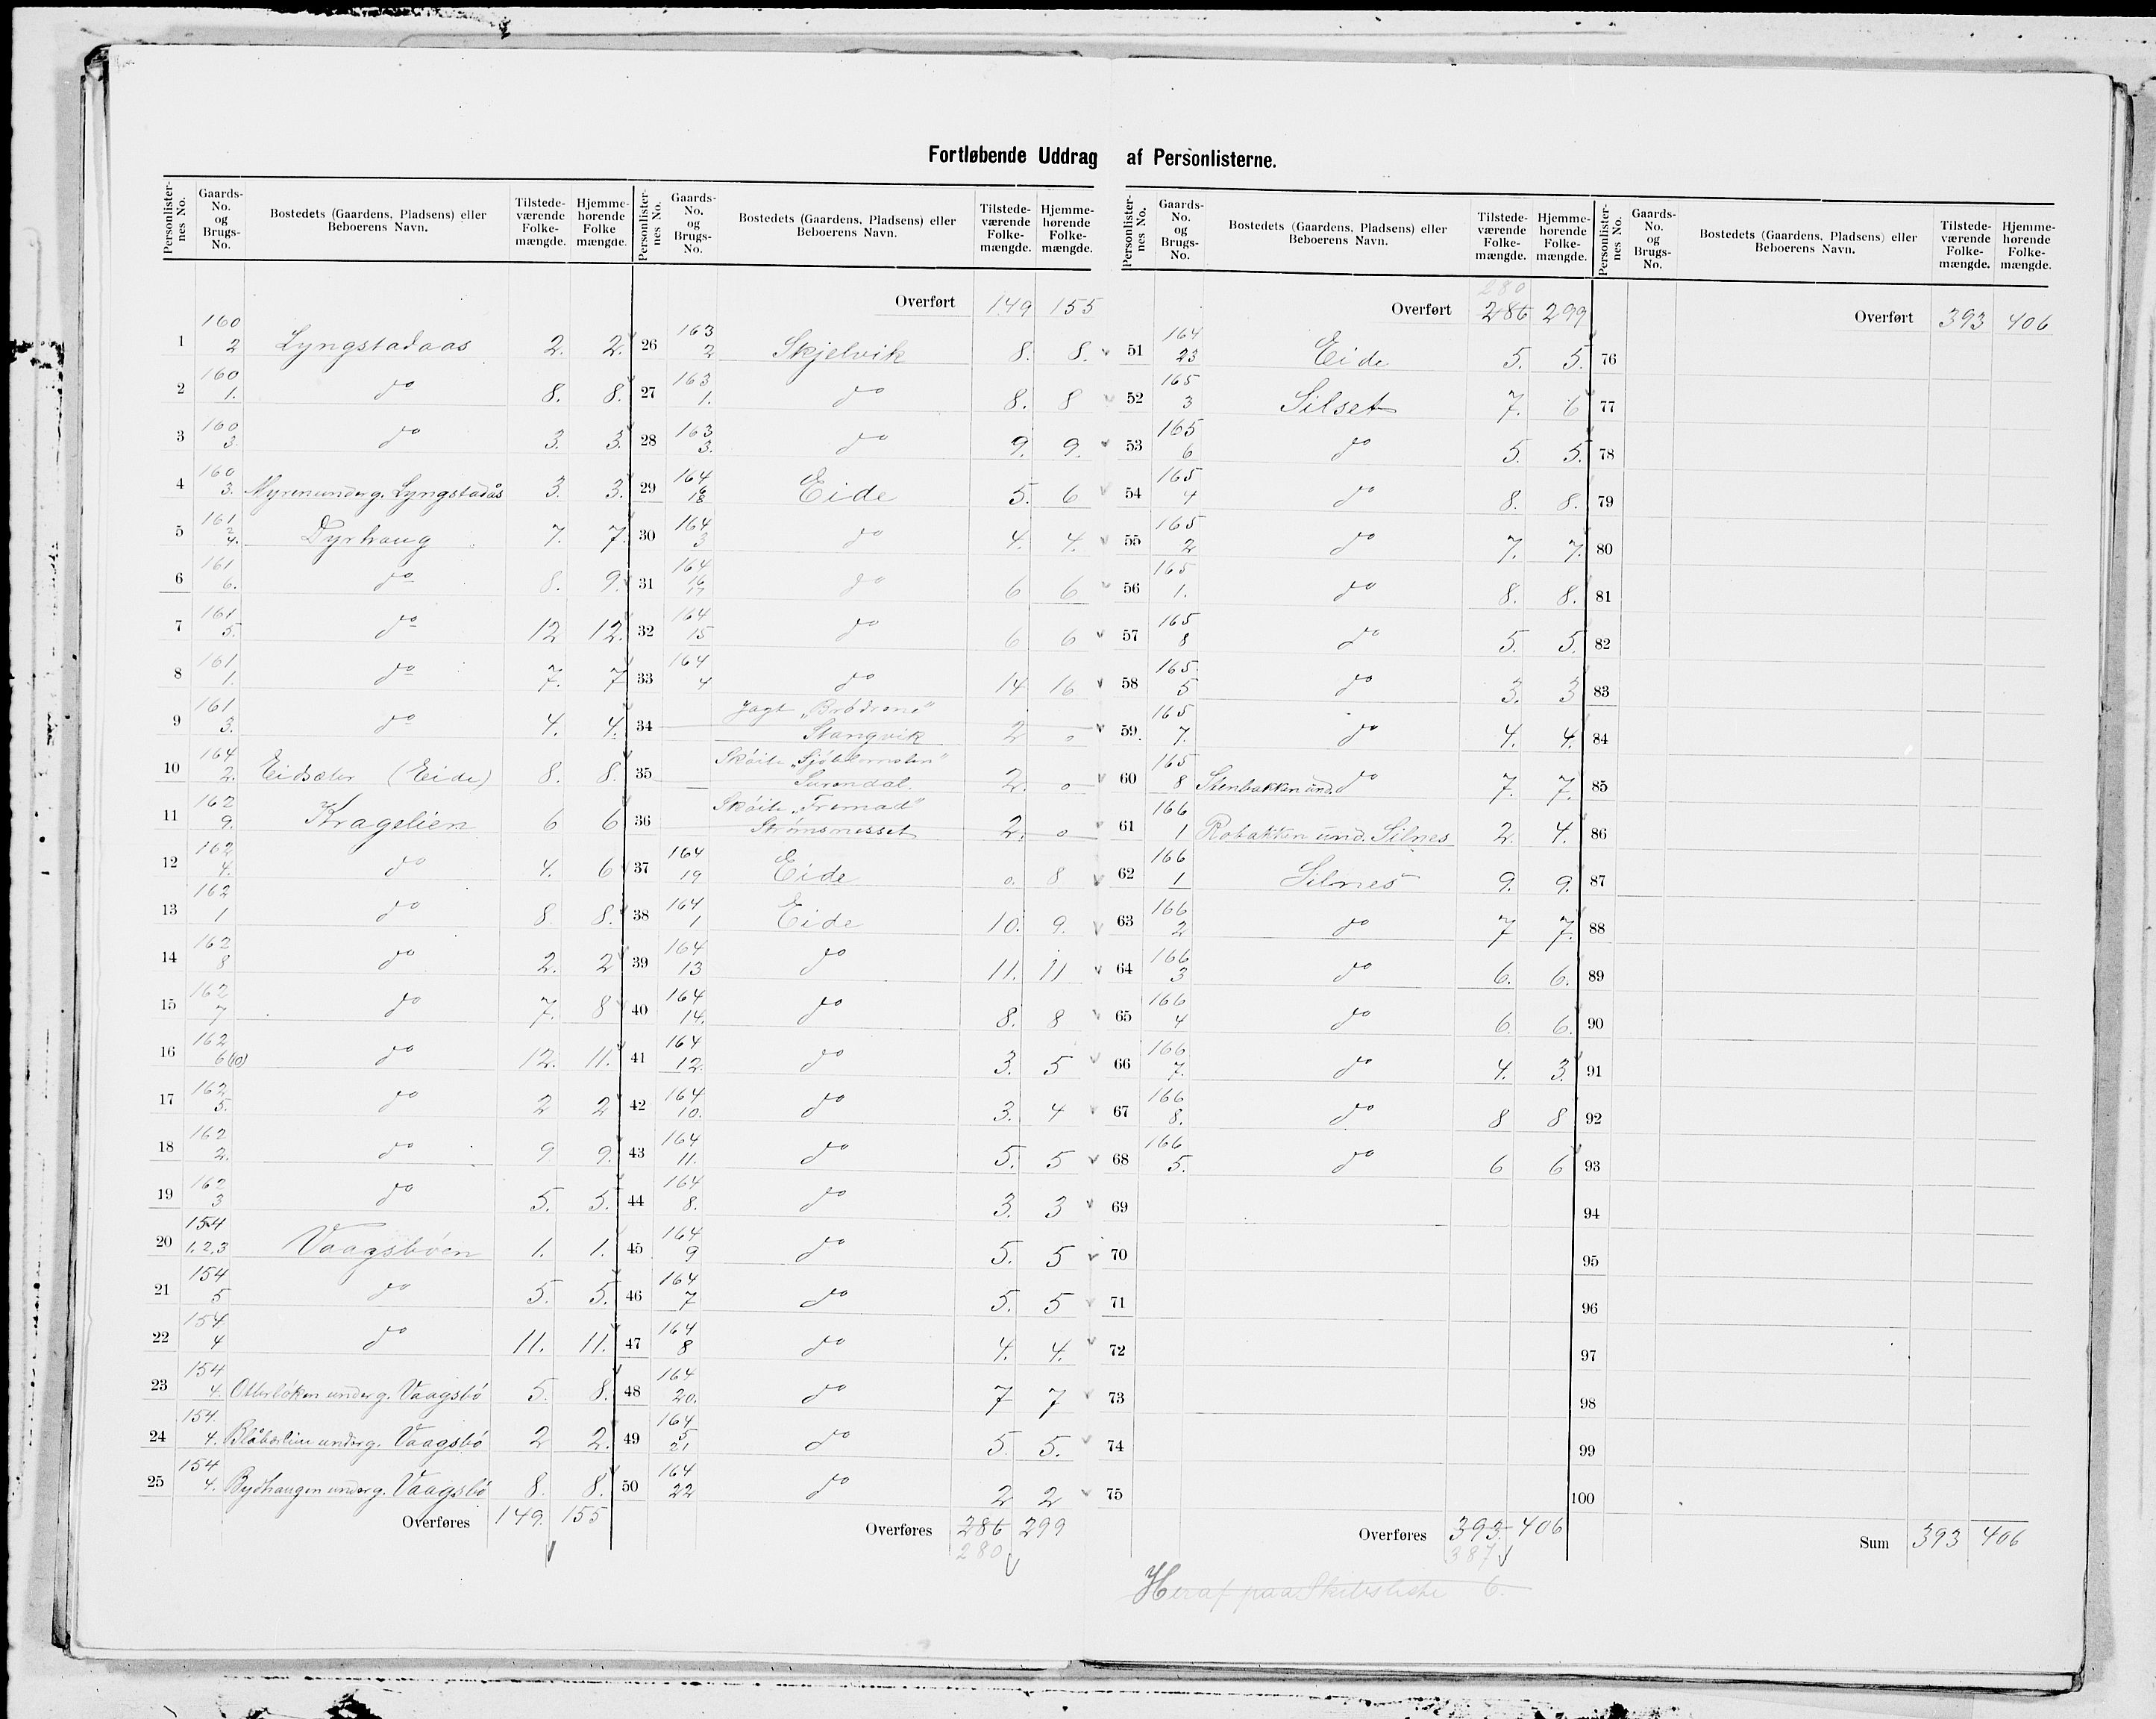 Fortløbende Uddrag af Personlisterne.
Personlisternes No. Gaards-No. og Brugs-No. Bostedets (Gaardens, Pladsens) eller Beboerens Navn. Tilstedeværende Folkemængde. Hjemmehørende Folkemængde.
1 160 2 Lyngstadaas 2. 2.
2 160 1. do 8. 8.
3 160 3. do 3. 3.
4 160 3. Myren underg. Lyngstadås 3. 3.
5 161 2 4. Dyrhaug 7. 7.
6 161 6. do 8. 9.
7 161 5. do 12 12.
8 161 1. do 7. 7
9 161 3. do 4. 4.
10 164 2. Eidsæter (Eide) 8. 8.
11 162 9. Kragelien 6 6
12 162 4. do 4. 6
13 162 1 do 8 8.
14 162 8 do 2. 2
15 162 7 do 7. 8
16 162 6(10) do 12. 11.
17 162 5. do 2 2
18 162 2. do 9 9.
19 162 3 do 5. 5.
20 154 1,2,3 Vaagsbøen 1. 1.
21 154 5 do 5. 5.
22 154 4 do 11. 11.
23 154 4. Otterløken underg. Vaagsbø 5. 8.
24 154 4. underg. Vaagsbø 2 2.
25 154 4. Bydhaugen underg. Vaagsbø 8. 8.
Overføres 149. 155
Overført 149 155
26 163 2 Skjelvik 8. 8.
27 163 1. do 8. 8
28 163 3. do 9. 9.
29 164 16 18 Eide 5. 6
30 164 3 do 4. 4.
31 164 16 17 do 6 6
32 164 15 do 6 6
33 164 4 do 14 16
34 Jagt "Brødrene" Stangvik 2 0
35 Skøite Surendal. 2. 0
36 Skøite "Fremad" Strømsnesset 2. 0
37 164 19 Eide 0. 8
38 164 1 Eide 10. 9.
39 164 13 do 11. 11
40 164 14. do 8. 8
41 164 12. do 3. 5
42 164 10. do 3. 4
43 164 11. do 5. 5
44 164 8. do 3. 3
45 164 9 do 5. 5
46 164 7 do 5. 5
47 164 8 do 4. 4.
48 164 20. do 7 7
49 164 5 21 do 5. 5.
50 164 22 do 2 2
Overføres 286 299
280
280
Overført 286 299
51 164 23 Eide 5. 5.
52 165 3 Silset 7. 6
53 165 6 do 5. 5.
54 165 4 do 8. 8.
55 165 2 do 7. 7.
56 165 1. do 8. 8.
57 165 8 do 5. 5.
58 165 5 do 3. 3
59. 165 7. do 4. 4.
60 165 8 Stenbakken und. do 7. 7.
61 166 1 Robakken und. Silnes 2. 4.
62 166 1 Silnes 9. 9.
63 166 2 do 7 7.
64 166 3 do 6. 6.
65 166 4 do 6. 6.
66 166 7. do 4. 3.
67 166 8. do 8 8
68 166 5. do 6 6
69
70
71
72
73
74
75
Overføres 393. 406
387
Heraf paa Skibsliste 6.
Overført 393 406
76
77
78
79
80
81
82
83
84
85
86
87
88
89
90
91
92
93
94
95
96
97
98
99
100
Sum 393 406